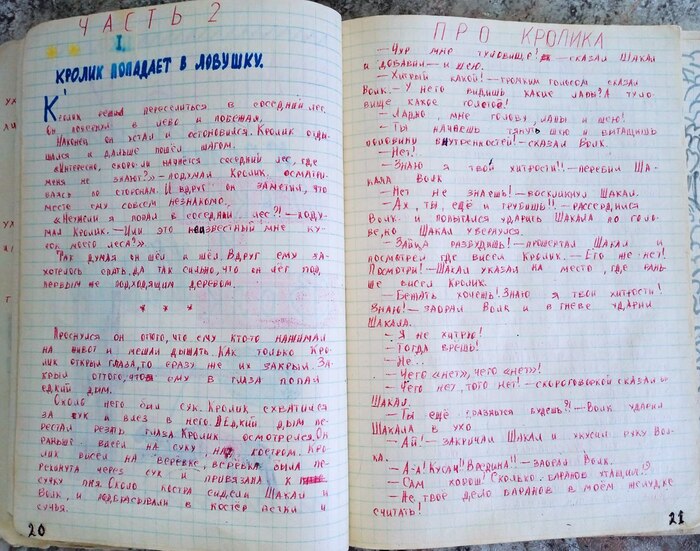 ЧАСТЬ 2
I.
КРОЛИК ПОПАДАЕТ В ЛОВУШКУ.
Кролик решил переселиться в соседний лес.
Он повернул в лево и побежал.
Наконец он устал и остоновился. Кролик отды-
шался и дальше пошёл шагом.
«Интересно, скоро-ли начнётся соседний лес, где
меня не знают?» – подумал Кролик. осматри-
ваясь по сторонам. И вдруг он заметил, что
место ему совсем незнакомо.
«Неужели я попал в соседний лес?! – поду-
мал Кролик. – Или это неизвестный мне ку-
сок моего леса?»
Так думая он шёл и шёл. Вдруг ему за-
хотелось спать, да так сильно, что он лёг под
первым же подходящим деревом.
* * *
Проснулся он оттого, что ему кто-то нажимал
на живот и мешал дышать. Как только Кро-
лик открыл глаза, то сразу же их закрыл. За-
крыл оттого, что ему в глаза попал
едкий дым.
Около него был сук. Кролик схватился
за сук и влез в него. Едкий дым пе-
рестал резать глаза. Кролик осмотрелся. Он
раньше висел на суку, над костром. Кро-
лик висел на верёвке, верёвка была пе-
рекинута через сук и привязана к
сучку пня. Около костра сидели Шакал и
Волк, и подбрасывали в костёр ветки и
сучья.
20
ПРО КРОЛИКА
– Чур мне туловище! – сказал Шакал
и добавил – и шею.
– Хитрый какой! – громким голосом сказал
Волк. – У него видишь какие лапы? А туло-
вище какое голое!
– Ладно, мне голову, лапы и шею!
– Ты начнёшь тянуть шею и вытащишь
половину внутренностей! – сказал Волк.
– Нет!
– Знаю я твои хитрости!! – перебил Ша-
кала Волк
– Нет не знаешь! – воскликнул Шакал.
– Ах, ты, ещё и грубишь!! – рассердился
Волк. и попытался ударить Шакала по голо-
ве, но Шакал увернулся.
– Зайца разбудишь! – прошептал Шакал и
посмотрел где висел Кролик. – Его же нет!
Посмотри! – Шакал указал на место, где рань-
ше висел Кролик.
– Бежать хочешь! Знаю я твои хитрости!
Знаю! – заорал Волк и в гневе ударил
Шакала.
– Я не хитрю!
– Тогда врёшь!
– Не...
– Чего «нет», чего «нет»!
– Чего нет, того нет! – скороговоркой сказал
Шакал.
– Ты ещё дразнится будешь?! – Волк ударил
Шакала в ухо.
– Ай! – закричал Шакал и укусил руку Вол-
ка.
– А-а! Кусай! Вредина!! – заорал Волк.
– Сам хорош! Сколько баранов утащил!?
– Не твоё дело баранов в моём желудке
считать!
21